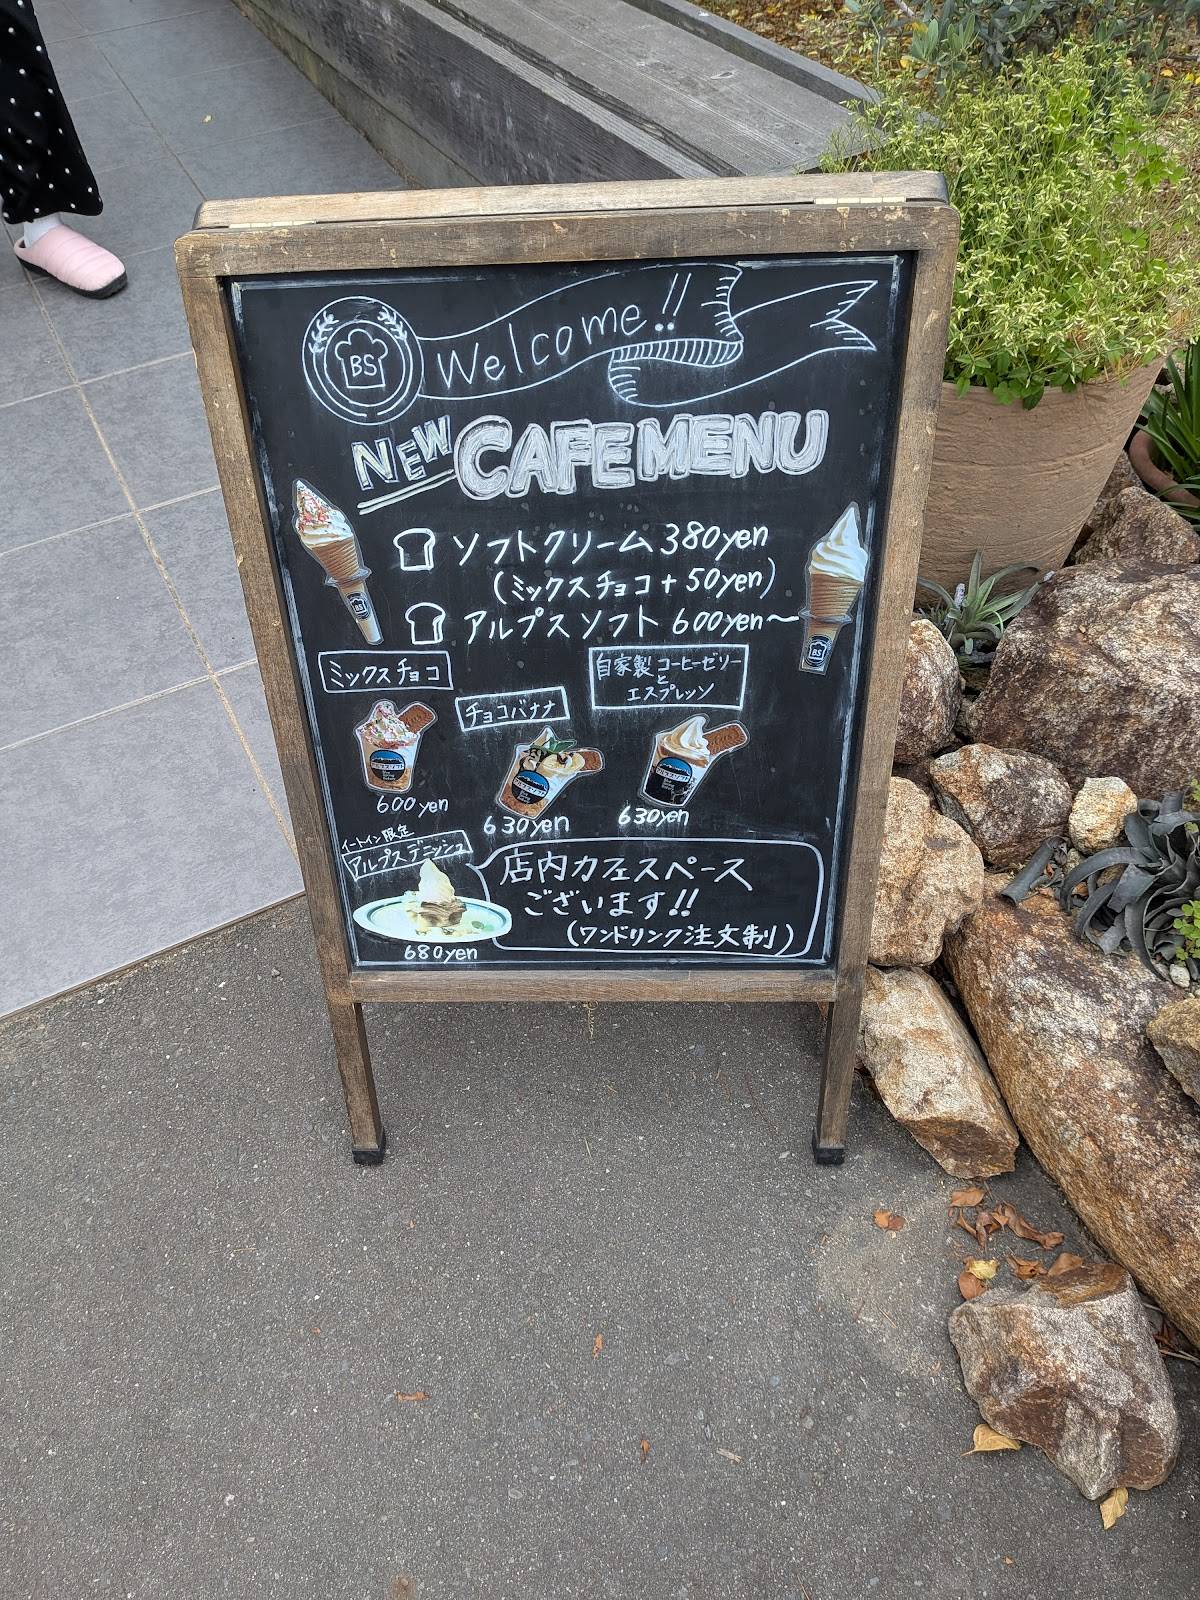 BS
Welcome!!
NEW CAFE MENU
ソフトクリーム 380yen
(ミックスチョコ+50yen)
アルプスソフト 600yen～
BS
BS
ミックスチョコ
チョコバナナ
自家製コーヒーゼリー
と
エスプレッソ
アルプスソフト
アルプスソフト
アルプスソフト
600yen
630yen
630yen
イートイン限定
アルプスデニッシュ
680yen
店内カフェスペース
ございます!!
(ワンドリンク注文制)